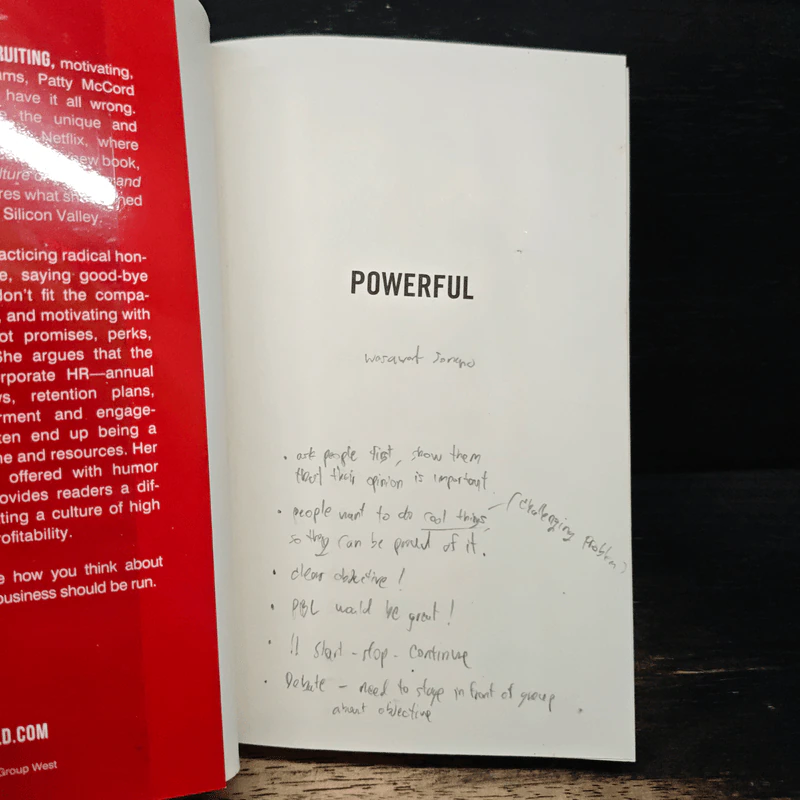 RUITING, motivating,
ms, Patty McCord
have it all wrong.
the unique and
Netflix, where
new book,
lture of and
res what she ned
Silicon Valley.
acticing radical hon-
e, saying good-bye
don't fit the compa-
, and motivating with
ot promises, perks,
She argues that the
rporate HR—annual
ws, retention plans,
rment and engage-
ten end up being a
me and resources. Her
offered with humor
ovides readers a dif-
ting a culture of high
rofitability.
e how you think about
business should be run.
LD.COM
Group West
POWERFUL
• ask people first, show them
that their opinion is important
• people want to do cool things, (challenging problem)
so they can be proud of it.
• clear objective!
• PBL would be great!
• !! start - stop - continue
• Debate - need to stage in front of group
about objective